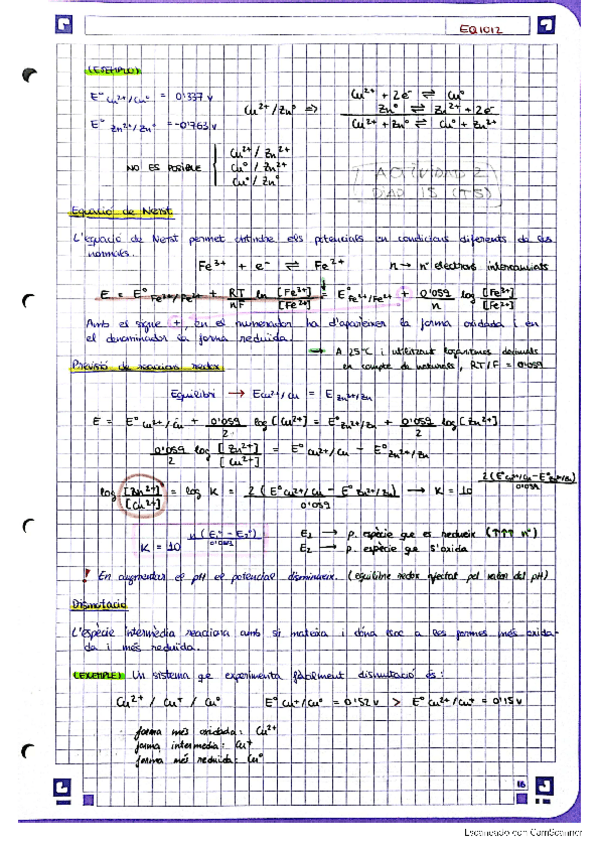 EQ1012
(EJEMPLO)
E° Cu²⁺/Cu° = 0'337 V
E° Zn²⁺/Zn° = -0'763 V
Cu²⁺/Zn° =>
Cu²⁺ + 2e⁻ ⇌ Cu°
Zn° ⇌ Zn²⁺ + 2e⁻
Cu²⁺ + Zn° ⇌ Cu° + Zn²⁺
NO ES POSIBLE
Cu²⁺/Zn²⁺
Cu°/Zn²⁺
Cu°/Zn°
ACTIVIDAD 2
DIAD 15 (T5)
Equació de Nerst
L'equació de Nerst permet obtindre els potencials en condicions diferents de les
normals.
Fe³⁺ + e⁻ ⇌ Fe²⁺
n → n° electrons intercanviats
E = E° Fe³⁺/Fe²⁺ + RT/nF ln [Fe³⁺]/[Fe²⁺] = E° Fe³⁺/Fe²⁺ + 0'059/n log [Fe³⁺]/[Fe²⁺]
Amb el signe +, en el numerador ha d'aparèixer la forma oxidada i en
el denominador la forma reduïda.
→ A 25°C i utilitzant logaritmes decimals
en compte de naturals, RT/F = 0'059
Previsió de reaccions redox
Equilibri → E Cu²⁺/Cu = E Zn²⁺/Zn
E = E° Cu²⁺/Cu + 0'059/2 log [Cu²⁺] = E° Zn²⁺/Zn + 0'059/2 log [Zn²⁺]
0'059/2 log [Zn²⁺]/[Cu²⁺] = E° Cu²⁺/Cu - E° Zn²⁺/Zn
log [Zn²⁺]/[Cu²⁺] = log K = 2(E° Cu²⁺/Cu - E° Zn²⁺/Zn)/0'059 → K = 10^2(E° Cu²⁺/Cu - E° Zn²⁺/Zn)/0'059
K = 10^n(E₁° - E₂°)/0'059
E₁ → p. espècie que es redueix (↑↑↑ n°)
E₂ → p. espècie que s'oxida
! En augmentar el pH el potencial disminueix. (equilibre redox afectat pel valor del pH)
Dismutació
L'espècie intermèdia reacciona amb si mateixa i dóna lloc a les formes més oxida-
da i més reduïda.
(EXEMPLE) Un sistema que experimenta fàcilment dismutació és:
Cu²⁺ / Cu⁺ / Cu°
E° Cu⁺/Cu° = 0'52 V > E° Cu²⁺/Cu⁺ = 0'15 V
forma més oxidada: Cu²⁺
forma intermèdia: Cu⁺
forma més reduïda: Cu°
16
Escaneado con CamScanner